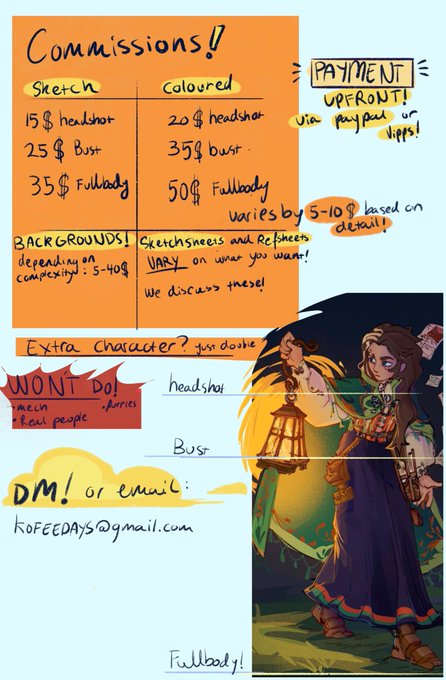 Commissions!!
Sketch
15$ headshot
25$ Bust
35$ Fullbody
Coloured
20$ headshot
35$ bust
50$ Fullbody
PAYMENT
UPFRONT!
via paypal or
Vipps!
varies by 5-10$ based on
detail!
BACKGROUNDS!
depending on
complexity: 5-40$
Sketchsheets and Refsheets
VARY on what you want!
We discuss these!
Extra Character? just double
WON'T DO!
-mech
•Real people
•furries
headshot
Bust
DM! or email:
KOFEEDAYS@gmail.com
Fullbody!